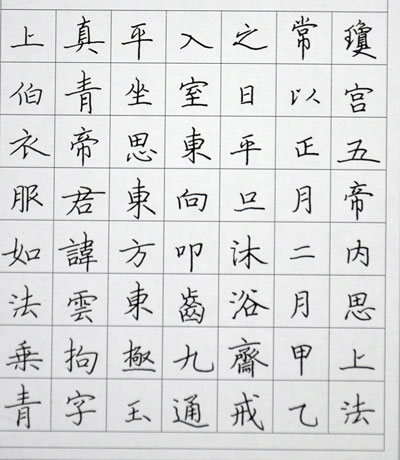 瓊宮五帝內思上法
常以正月二月甲乙
之日平旦沐浴齋戒
入室東向叩齒九通
平坐思東方東極玉
真青帝君諱雲拘字
上伯衣服如法乗青